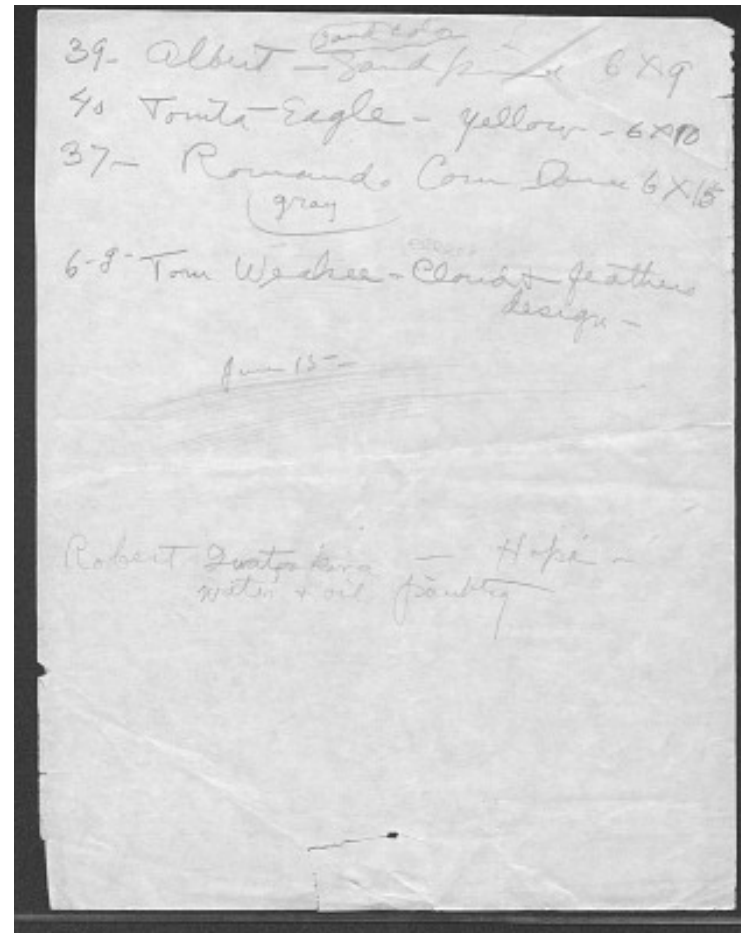 39- Albert - Sand 6 X 9
40 Tonita - Eagle - yellow - 6 X 10
37- Romando Corn Dance 6 X 15
gray
6-8- Tom Weahkee - Cloud + feathers
design -
June 15 -
Robert - Hopi -
water + oil painting